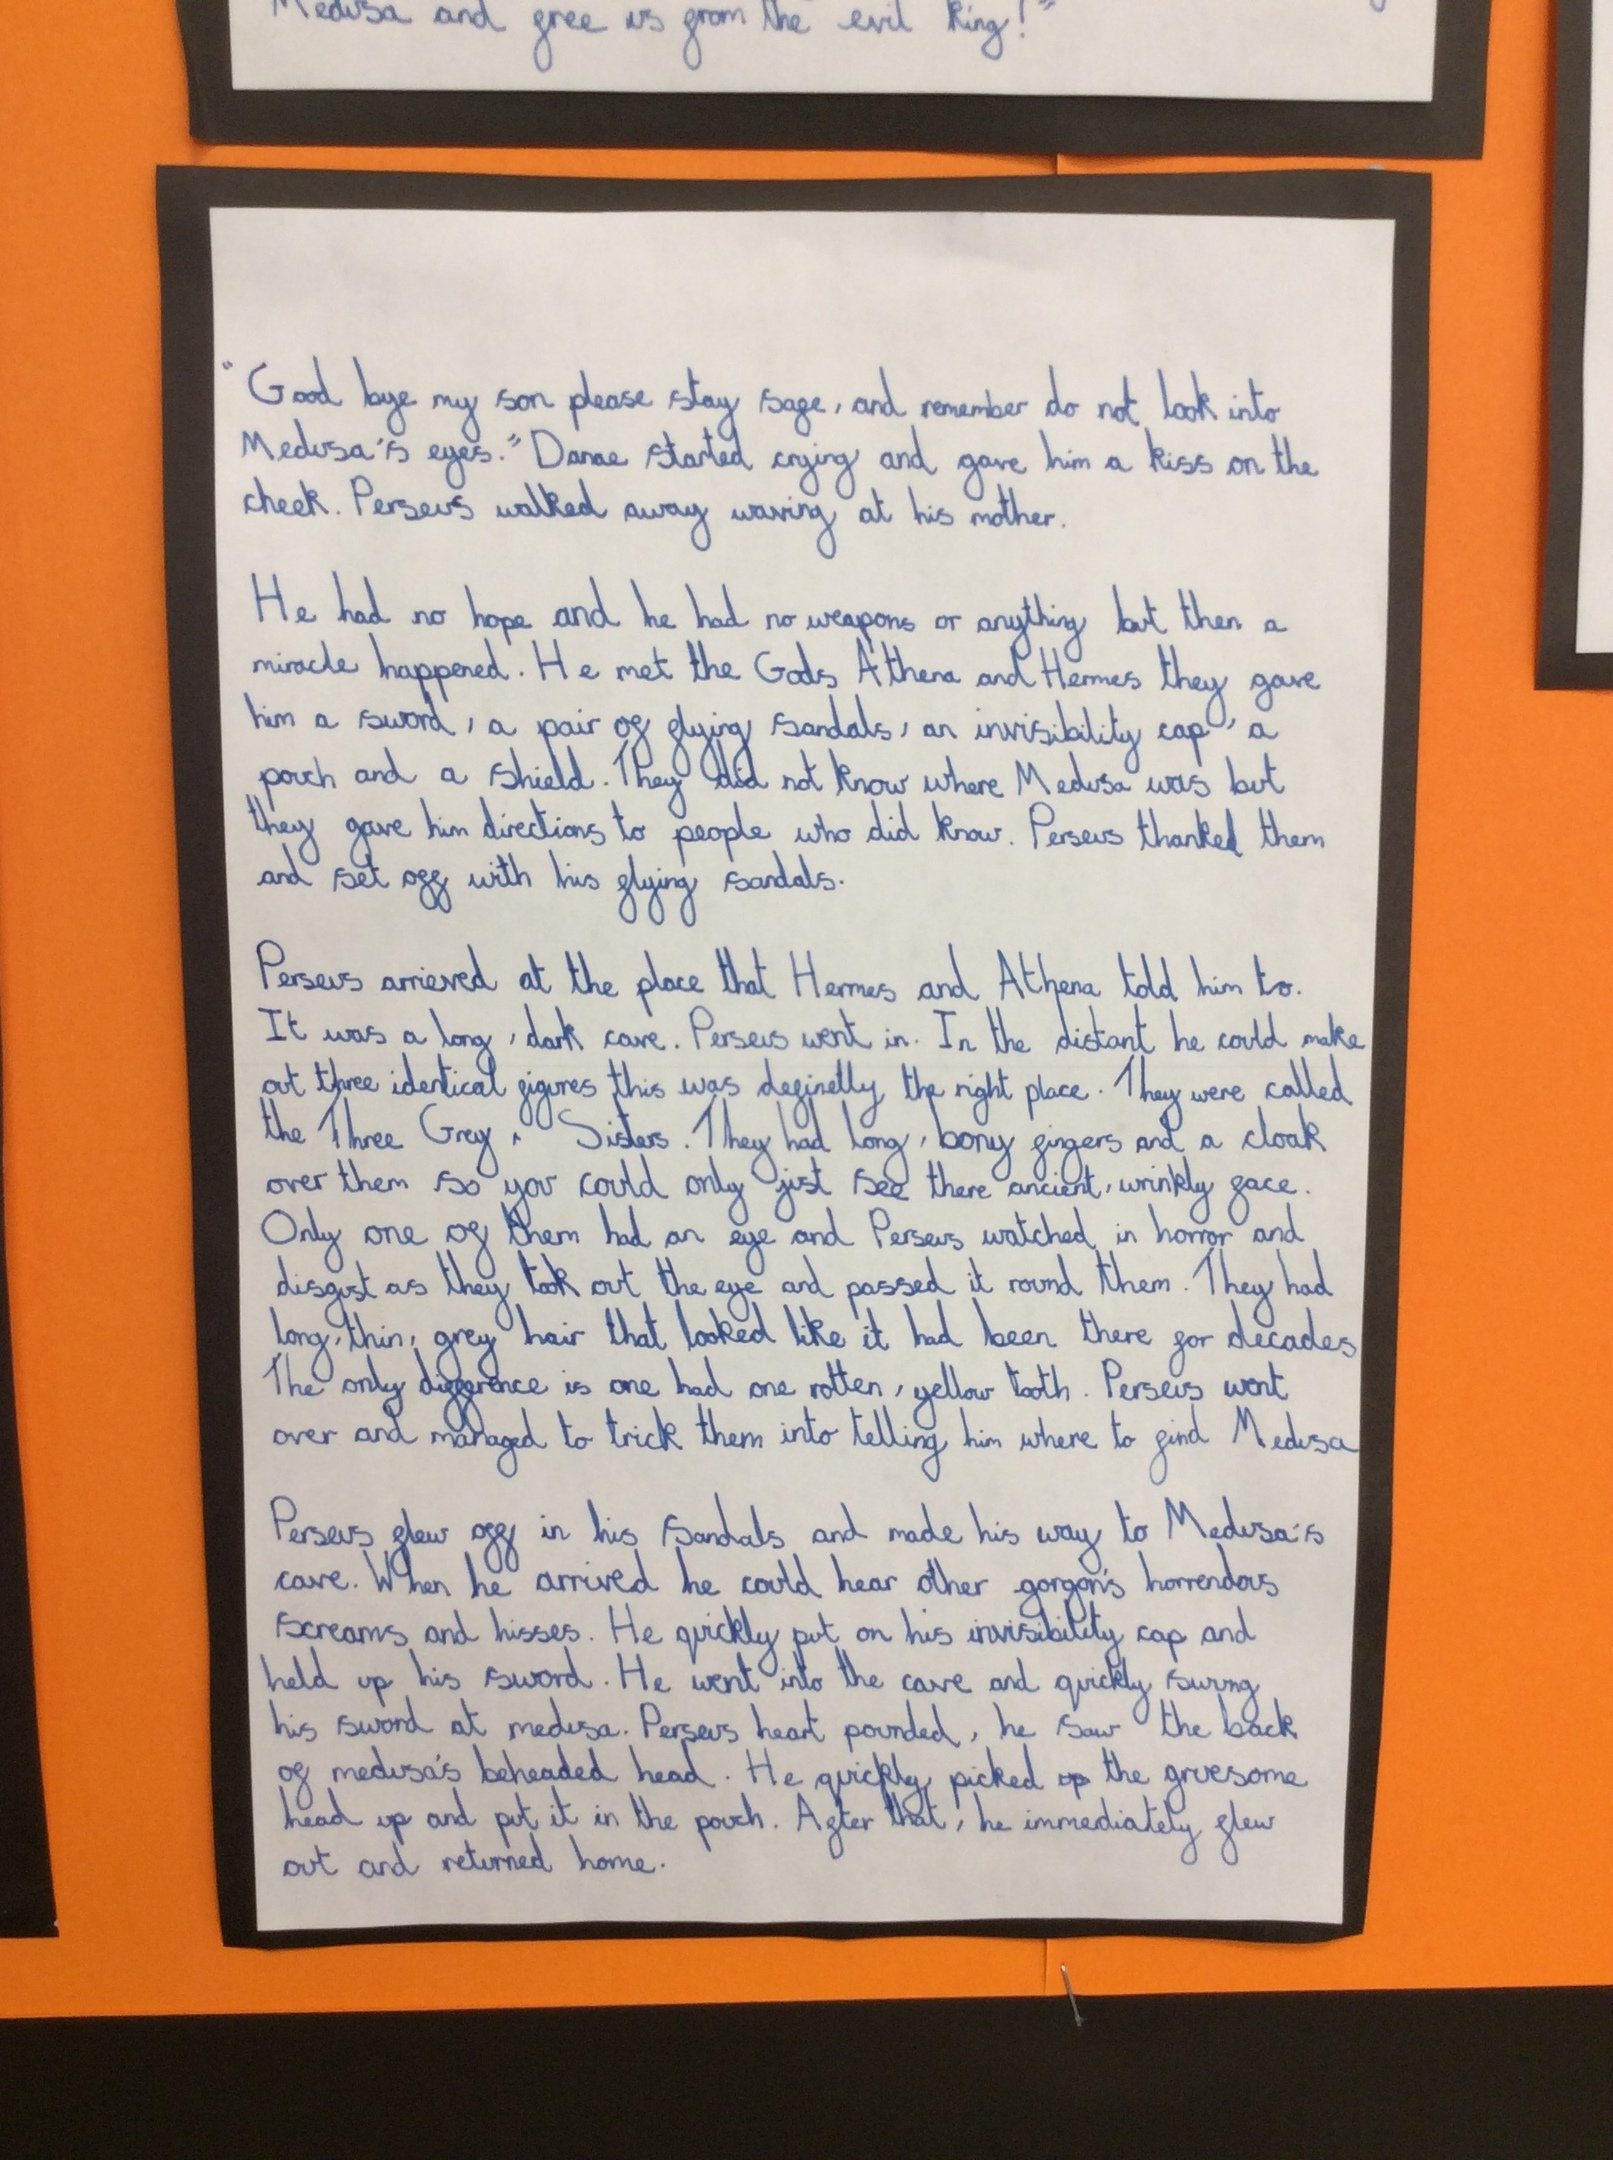 Medusa and free us from the evil king!"
"Good bye my son please stay safe, and remember do not look into
Medusa's eyes." Danae started crying and gave him a kiss on the
cheek. Perseus walked away waving at his mother.
He had no hope and he had no weapons or anything but then a
miracle happened. He met the Gods Athena and Hermes they gave
him a sword, a pair of flying sandals, an invisibility cap, a
pouch and a shield. They did not know where Medusa was but
they gave him directions to people who did know. Perseus thanked them
and set off with his flying sandals.
Perseus arrieved at the place that Hermes and Athena told him to.
It was a long, dark cave. Perseus went in. In the distant he could make
out three identical figures this was definetly the right place. They were called
the Three Grey Sisters. They had long, bony fingers and a cloak
over them so you could only just see there ancient, wrinkly face.
Only one of them had an eye and Perseus watched in horror and
disgust as they took out the eye and passed it round them. They had
long, thin, grey hair that looked like it had been there for decades
The only difference is one had one rotten, yellow tooth. Perseus went
over and managed to trick them into telling him where to find Medusa
Perseus flew off in his sandals and made his way to Medusa's
cave. When he arrived he could hear other gorgon's horrendous
screams and hisses. He quickly put on his invisibility cap and
held up his sword. He went into the cave and quickly swung
his sword at medusa. Perseus heart pounded, he saw the back
of medusa's beheaded head. He quickly picked up the gruesome
head up and put it in the pouch. After that, he immediately flew
out and returned home.